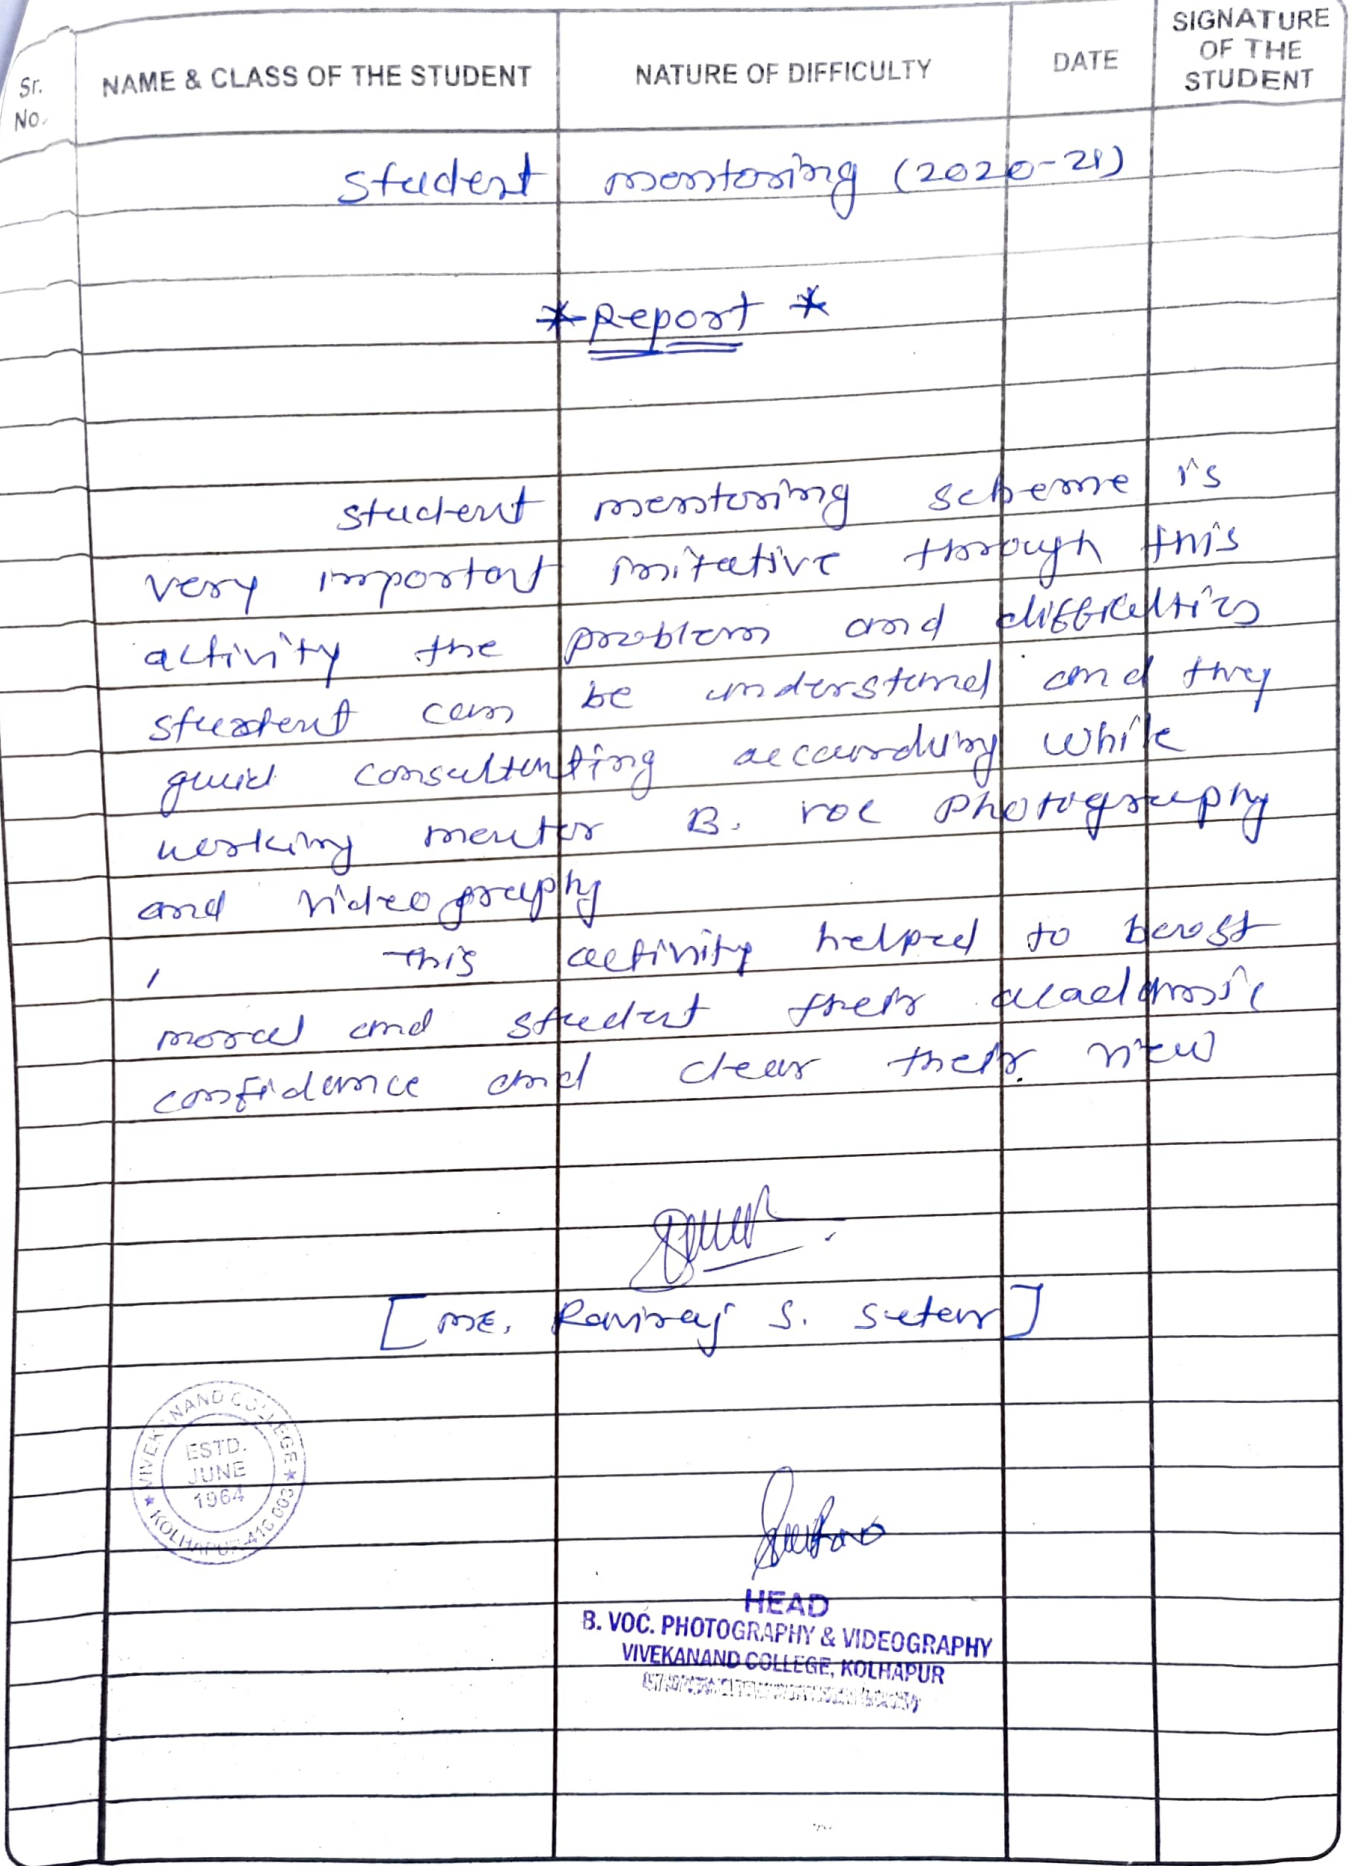 Sr. No.
NAME & CLASS OF THE STUDENT
NATURE OF DIFFICULTY
DATE
SIGNATURE OF THE STUDENT
Student mentoring (2020-21)
* Report *
student mentoring scheme is
very important initative through this
activity the problem and difficulties
student can be understand and they
guid consultanting accoarding while
working mentor B. voc photography
and videography
This activity helped to boost
moral and student their acadmic
confidance and clear their view
[Mr. Raviraj S. Sutar]
VIVEKANAND COLLEGE
ESTD.
JUNE
1964
KOLHAPUR-416 003
HEAD
B. VOC. PHOTOGRAPHY & VIDEOGRAPHY
VIVEKANAND COLLEGE, KOLHAPUR